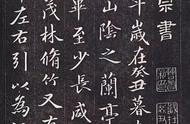 宗書
歲在癸丑暮
山陰之蘭亭
畢至少長咸
茂林脩竹又
左右引以為